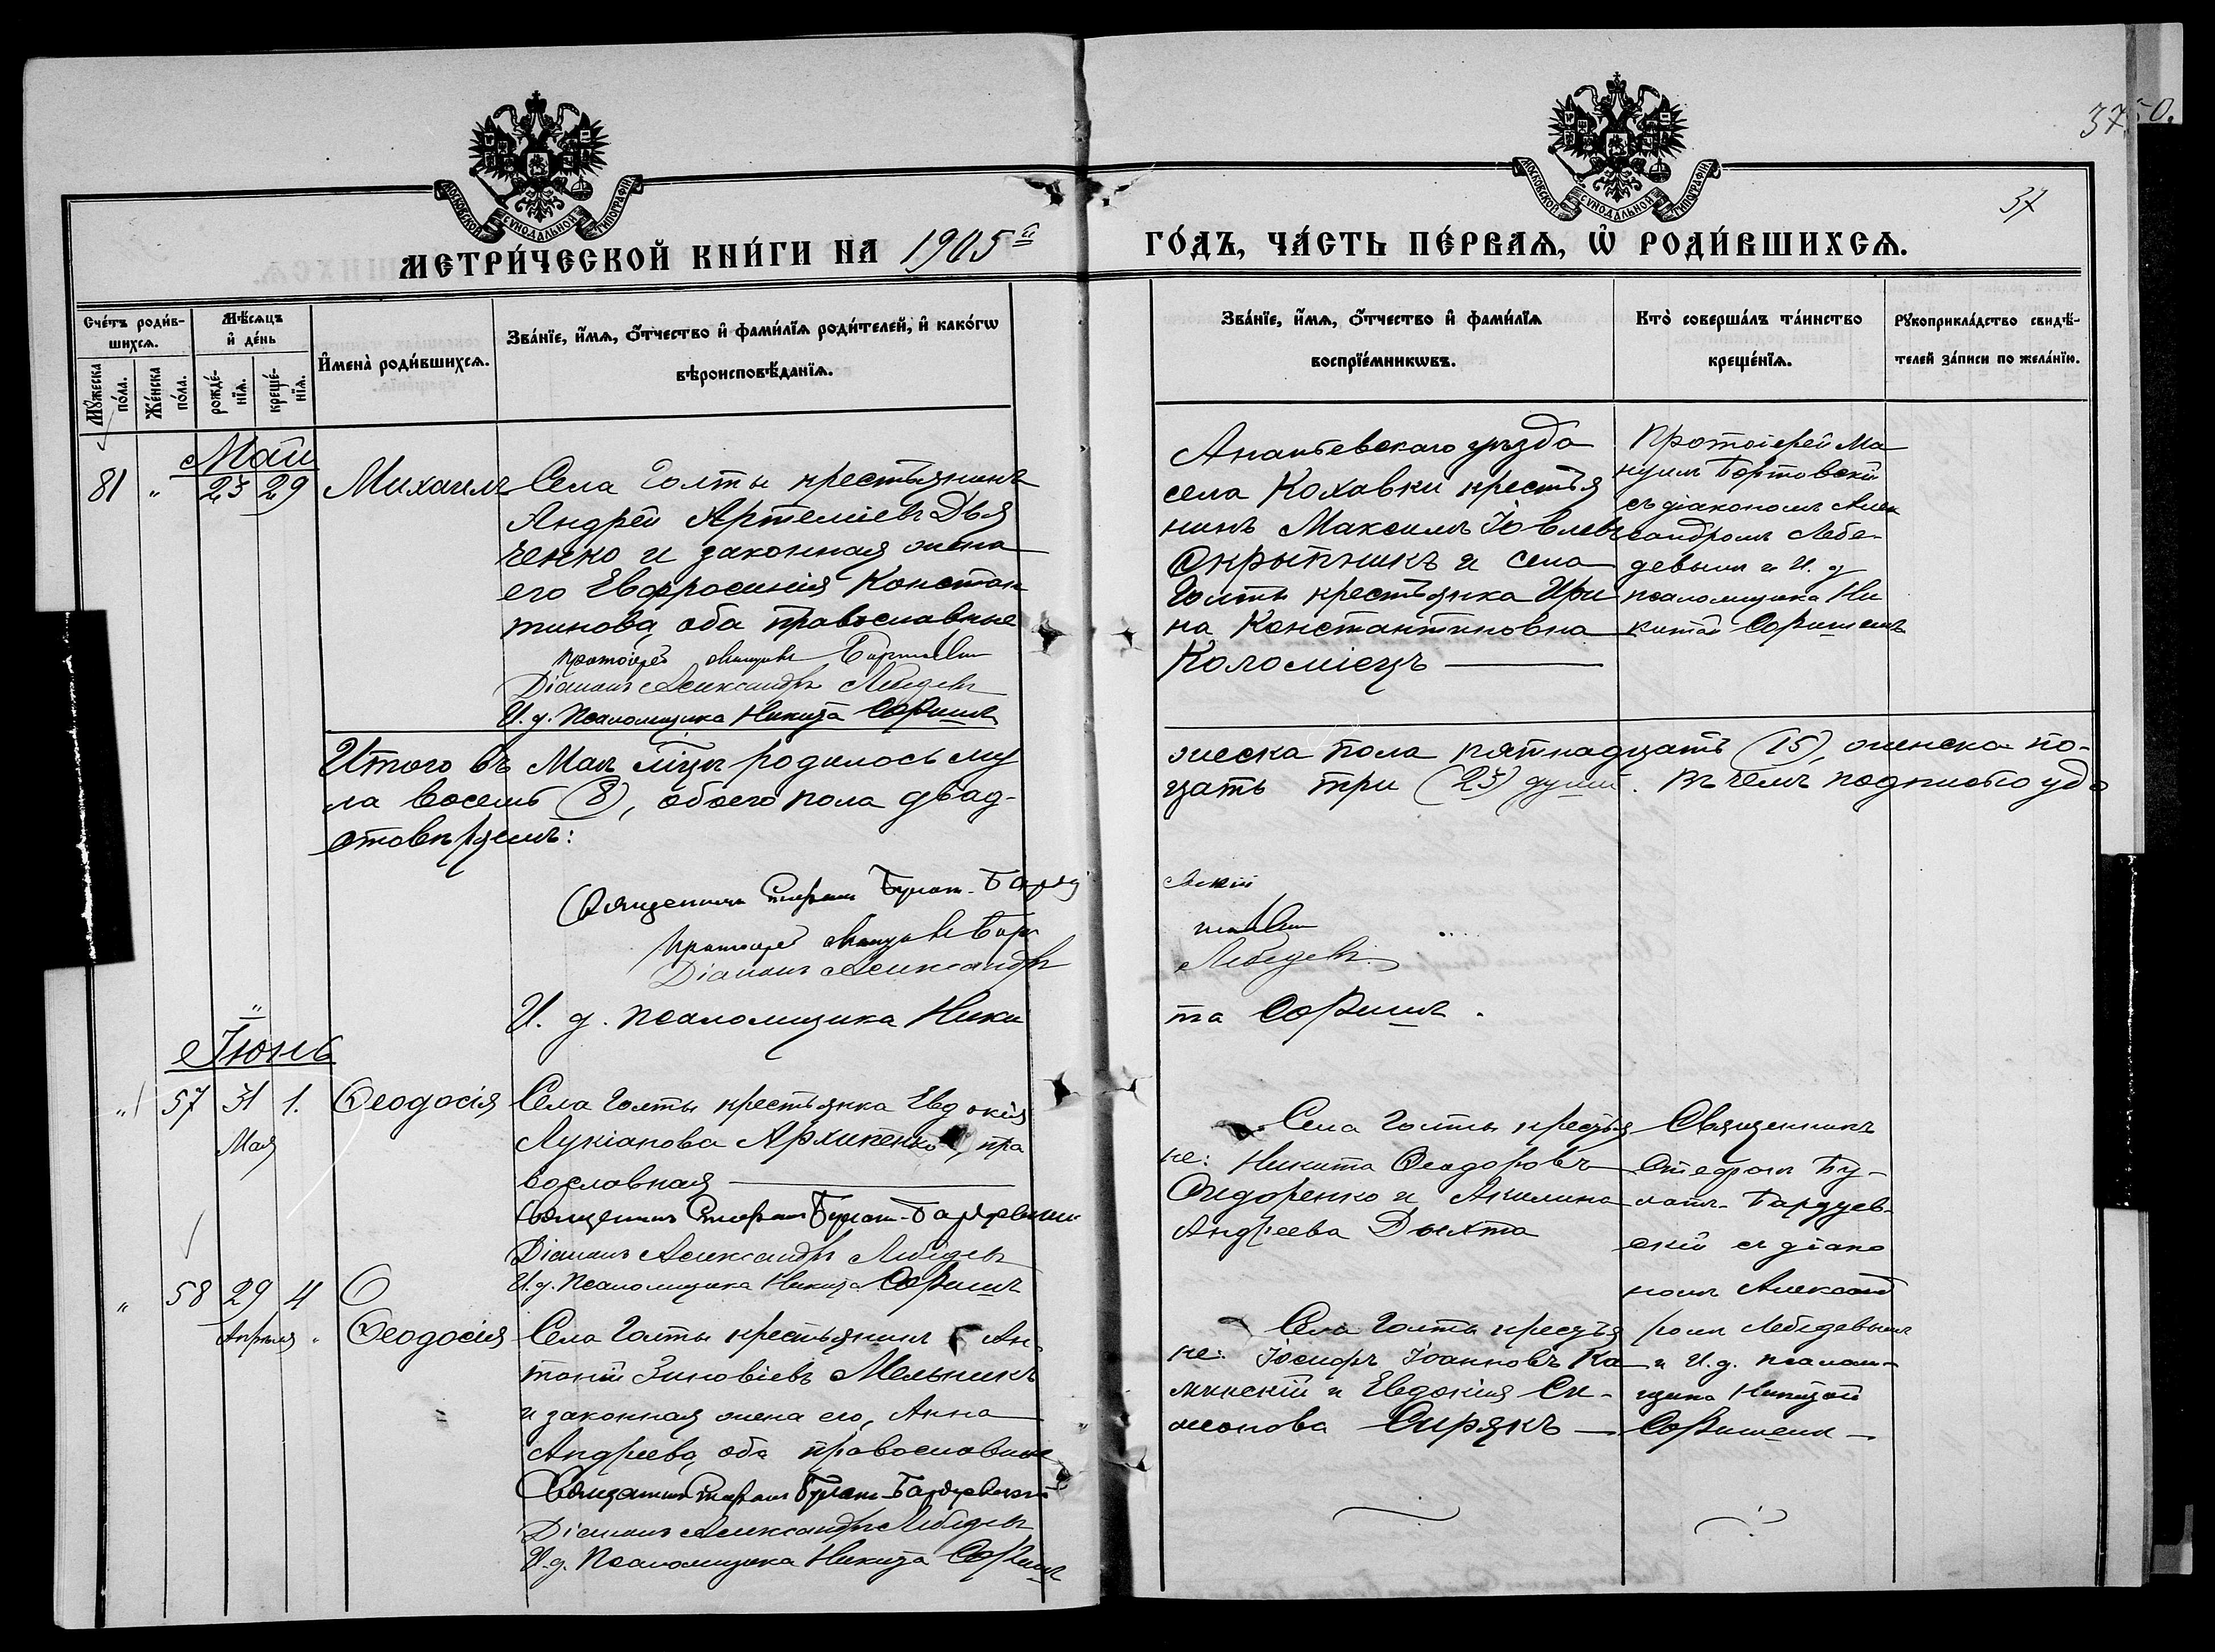 37
37
МОСКОВСКОЙ СѴНОДАЛЬНОЙ ТИПОГРАФІИ
МОСКОВСКОЙ СѴНОДАЛЬНОЙ ТИПОГРАФІИ
МЕТРИ́ЧЕСКОЙ КНИ́ГИ НА 1905й ГО́ДЪ, ЧА́СТЬ ПЕ́РВАѦ, Ѡ҆ РОДИ́ВШИХСѦ.
Сче́тъ роди́в-
шихсѧ.
Мꙋжеска по́ла.
Же́нска по́ла.
Мѣ́сѧцъ
и҆ де́нь
рожде́-
нїѧ.
креще́-
нїѧ.
И҆мена̀ роди́вшихсѧ.
Зва́нїе, и҆́мѧ, ѻ҆́тчество и҆ фами́лїѧ роди́телей, и҆ како́гѡ
вѣроисповѣ́данїѧ.
Зва́нїе, и҆́мѧ, ѻ҆́тчество и҆ фами́лїѧ
воспрїе́мникѡвъ.
Кто̀ соверша́лъ та́инство
креще́нїѧ.
Рꙋкоприкла́дство свидѣ́-
телей за́писи по жела́нїю.
Май
81 " 23 29 Михаилъ
Села Голты крестьянинъ
Андрей Артеміевъ Дья
ченко и законная жена
его Евфросинія Констан
тинова, оба православные
Протоіерей
Діаконъ Александръ Лебедевъ
И. д. Псаломщика Никита
Ананьевскаго уѣзда
села Кохавки крестья
нинъ Максимъ Іовлевъ
Скрыпникъ и села
Голты крестьянка Ири
на Константиновна
Коломіецъ
Протоіерей Ма
нуилъ Бортовскій
съ діакономъ Алек
сандромъ Лебе-
девымъ и И. д
псаломщика Ни
китой
Итого въ Маѣ мцѣ родилось му
жеска пола пятнадцать (15), женска по-
ла восемь (8), обоего пола двад-
цать три (23) души. Въ чемъ подписью удо
стовѣряемъ:
Священникъ Стефанъ Булат-Бардз
евскій
Протоіерей
Діаконъ Александръ
Лебедевъ
И. д. псаломщика Ники
та
Іюнь
" 57 31 1. Ѳеодосія
Мая
Села Голты крестьянка Евдокія
Лукіанова Архипенко, пра
вославная
Священникъ Стефанъ
Діаконъ Александръ Лебедевъ
И. д. Псаломщика Никита
Села Голты крестья
не: Никита Ѳеодоровъ
Сидоренко и Акилина
Андреева Дыхта
Священникъ
Стефанъ Бу-
латъ-
скій съ діако
номъ Александ
ромъ Лебедевымъ
и И. д. псалом-
щика Никитой
" 58 29 4
Апрѣля " Ѳеодосія
Села Голты крестьянинъ Ан-
тоній Зиновіевъ Мельникъ
и законная жена его, Анна
Андреева, оба православные
Священникъ Стефанъ
Діаконъ Александръ Лебедевъ
И. д. Псаломщика Никита
Села Голты крестья
не: Іосифъ Іоанновъ Ка
минскій и Евдокія Си-
меонова Сирякъ